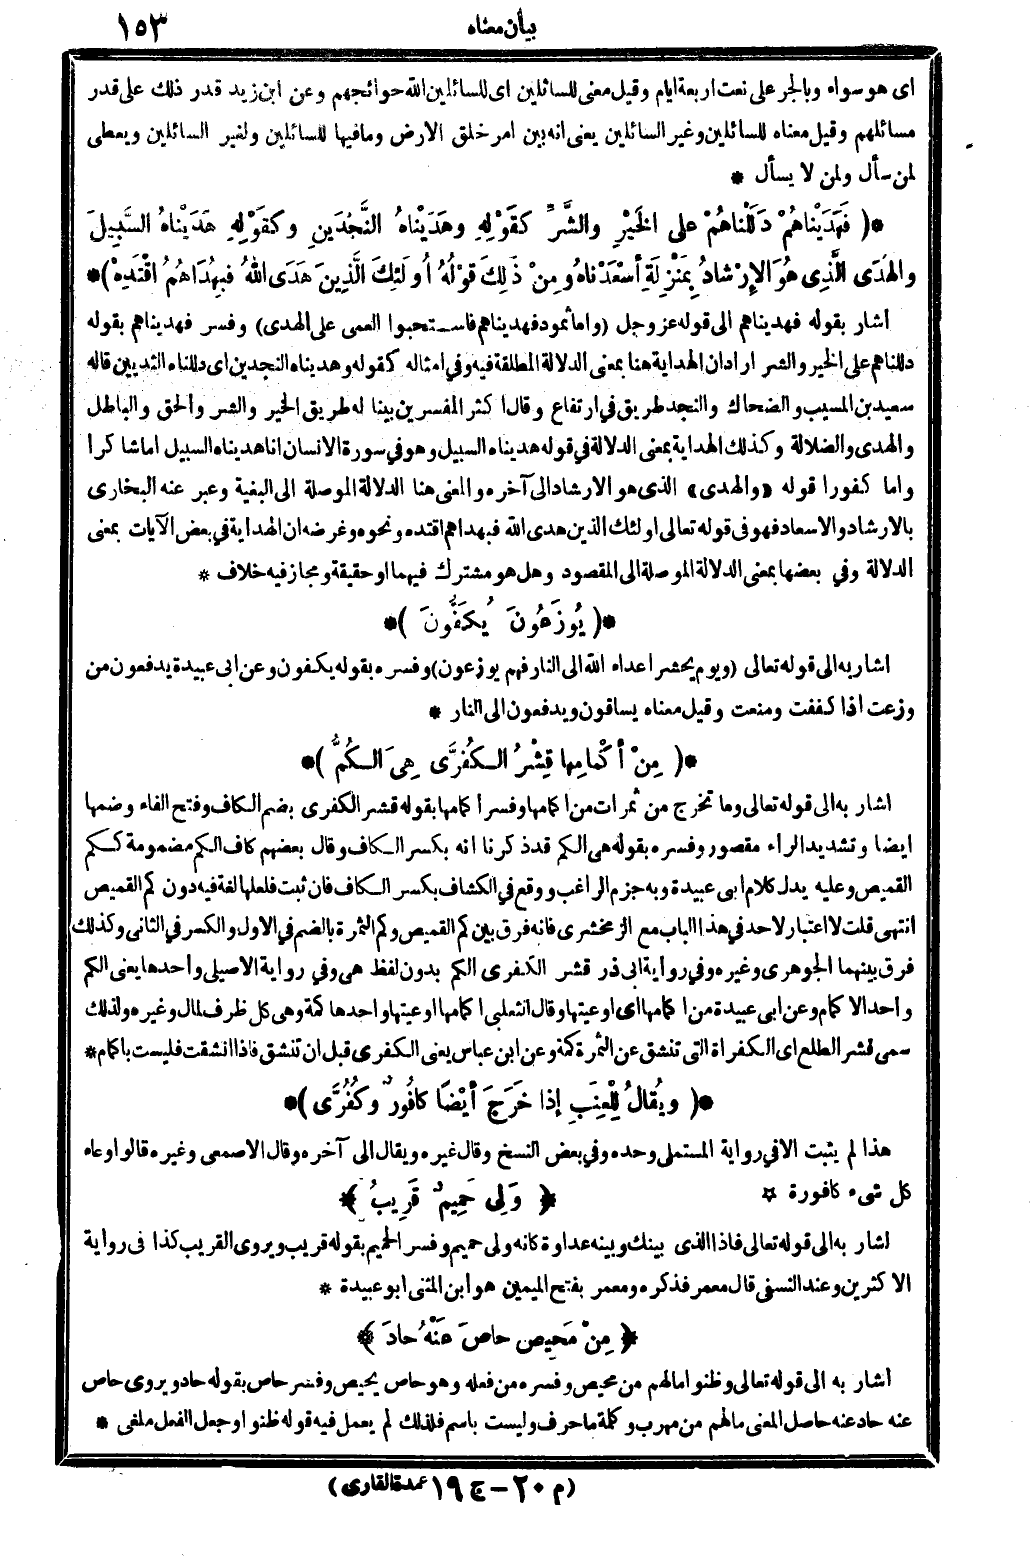 بيان معناه
١٥٣
اى هو سواء وبالجر على نعت اربعة ايام وقيل معنى للسائلين اى للسائلين الله حوائجهم وعن ابن زيد قدر ذلك على قدر
مسائلهم وقيل معناه للسائلين وغير السائلين يعنى انه بين امر خلق الارض ومافيها للسائلين ولغير السائلين ويعطى
لمن سأل ولمن لا يسأل *
*( فَهَدَيْناهُمْ دَلَلْناهُمْ على الخَيْرِ والشَّرِّ كَقَوْلِهِ وهَدَيْناهُ النَّجْدَينِ وكَقَوْلِهِ هَدَيْناهُ السَّبِيلَ
والهُدَى الَّذِى هُوَ الإِرْشادُ بِمَنْزِلَةِ أسْعَدْناهُ ومِنْ ذَلِكَ قَوْلُهُ أُولَئِكَ الَّذِينَ هَدَى اللهُ فَبِهُدَاهُمُ اقْتَدِهْ )*
اشار بقوله فهديناهم الى قوله عز وجل (واما ثمود فهديناهم فاستحبوا العمى على الهدى) وفسر فهديناهم بقوله
دللناهم على الخير والشر اراد ان الهداية هنا بمعنى الدلالة المطلقة فيه وفي امثاله كقوله وهديناه النجدين اى دللناه الثديين قاله
سعيد بن المسيب والضحاك والنجد طريق في ارتفاع وقال اكثر المفسرين بينا له طريق الخير والشر والحق والباطل
والهدى والضلالة وكذلك الهداية بمعنى الدلالة في قوله هديناه السبيل وهو في سورة الانسان انا هديناه السبيل اما شاكرا
واما كفورا قوله «والهدى» الذى هو الارشاد الى آخره والمعنى هنا الدلالة الموصلة الى البغية وعبر عنه البخارى
بالارشاد والاسعاد فهو فى قوله تعالى اولئك الذين هدى الله فبهداهم اقتده ونحوه وغرضه ان الهداية في بعض الآيات بمعنى
الدلالة وفي بعضها بمعنى الدلالة الموصلة الى المقصود وهل هو مشترك فيهما او حقيقة ومجاز فيه خلاف *
*( يُوزَعُونَ يُكَفُّونَ )*
اشار به الى قوله تعالى (ويوم يحشر اعداء الله الى النار فهم يوزعون) وفسره بقوله يكفون وعن ابى عبيدة يدفعون من
وزعت اذا كففت ومنعت وقيل معناه يساقون ويدفعون الى النار *
*( مِنْ أكْمامِها قِشْرُ الكُفُرَّى هِىَ الكُمُّ )*
اشار به الى قوله تعالى وما تخرج من ثمرات من اكمامها وفسر اكمامها بقوله قشر الكفرى بضم الكاف وفتح الفاء وضمها
ايضا وتشديد الراء مقصور وفسره بقوله هى الكم قد ذكرنا انه بكسر الكاف وقال بعضهم كاف الكم مضمومة ككم
القميص وعليه يدل كلام ابى عبيدة وبه جزم الراغب ووقع في الكشاف بكسر الكاف فان ثبت فلعلها لغة فيه دون كم القميص
انتهى قلت لا اعتبار لاحد في هذا الباب مع الزمخشرى فانه فرق بين كم القميص وكم الثمرة بالضم في الاول والكسر في الثانى وكذلك
فرق بينهما الجوهرى وغيره وفي رواية ابى ذر قشر الكفرى الكم بدون لفظ هى وفي رواية الاصيلى واحدها يعنى الكم
واحد الاكمام وعن ابى عبيدة من اكمامها اى اوعيتها وقال الثعلبى اكمامها اوعيتها واحدها كمة وهى كل ظرف لمال وغيره ولذلك
سمى قشر الطلع اى الكفراة التى تنشق عن الثمرة كمة وعن ابن عباس يعنى الكفرى قبل ان تنشق فاذا انشقت فليست باكمام*
*( ويُقالُ لِلْعِنَبِ إذا خَرَجَ أيْضًا كافُورٌ وكُفُرَّى )*
هذا لم يثبت الا في رواية المستملى وحده وفي بعض النسخ وقال غيره ويقال الى آخره وقال الاصمعى وغيره قالوا وعاء
كل شىء كافورة ☆
﴿ وَلِى حَمِيمٌ قَرِيبٌ ﴾
اشار به الى قوله تعالى فاذا الذى بينك وبينه عداوة كانه ولى حميم وفسر الحميم بقوله قريب ويروى القريب كذا فى رواية
الاكثرين وعند النسفى قال معمر فذكره ومعمر بفتح الميمين هو ابن المثنى ابو عبيدة *
﴿ مِنْ مَحِيصٍ حاصَ عَنْهُ حادَ ﴾
اشار به الى قوله تعالى وظنوا مالهم من محيص وفسره من فعله وهو حاص يحيص وفسر حاص بقوله حاد ويروى حاص
عنه حاد عنه حاصل المعنى مالهم من مهرب وكلمة ما حرف وليست باسم فلذلك لم يعمل فيه قوله ظنوا وجعل الفعل ملغى *
(م ٢٠ – ج ١٩ عمدة القارى)